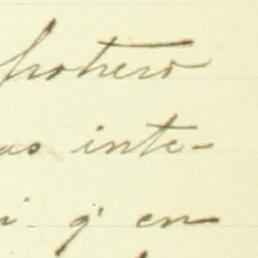 potrero
as inte-
i q' en